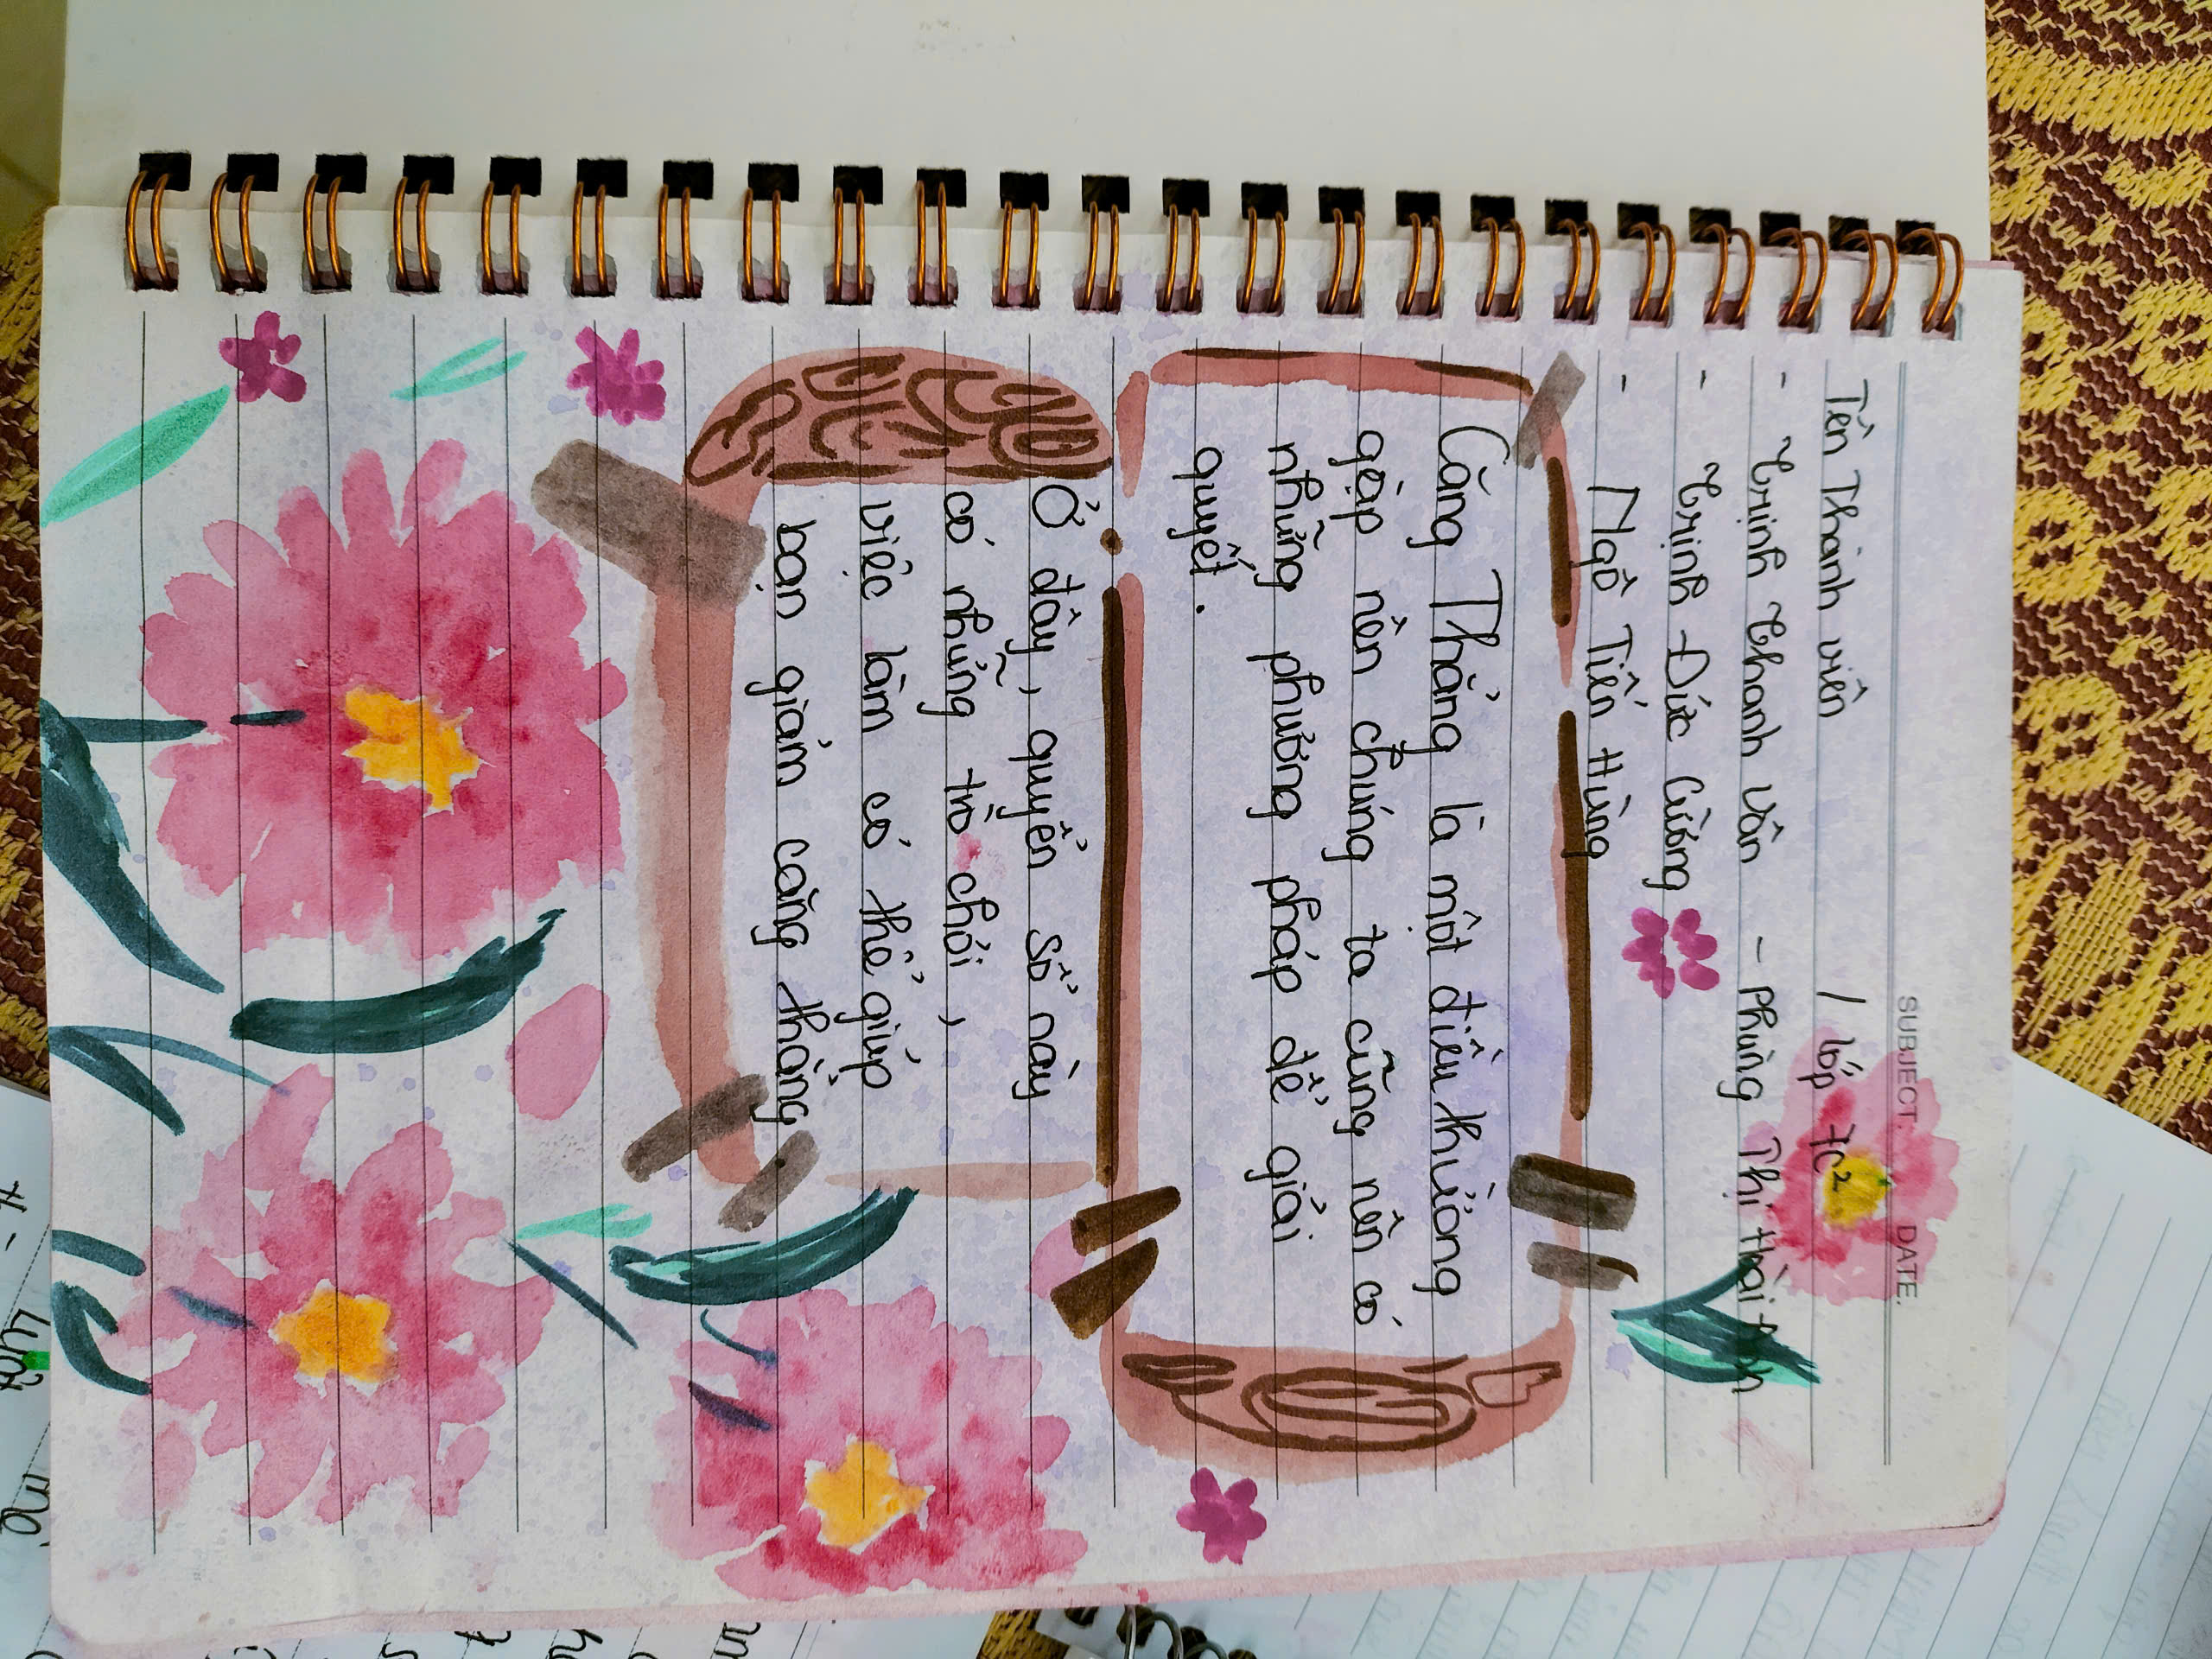 SUBJECT. DATE.
Tên Thành viên / lớp 7C2
- Trịnh Thanh Vân - Phùng Thị Hoài
- Trịnh Đức Cường
- Ngô Tiến Hùng
Căng Thẳng là một điều thường
gặp nên chúng ta cũng nên có
những phương pháp để giải
quyết.
Ở đây, quyển sổ này
có những trò chơi,
việc làm có thể giúp
bạn giảm căng thẳng